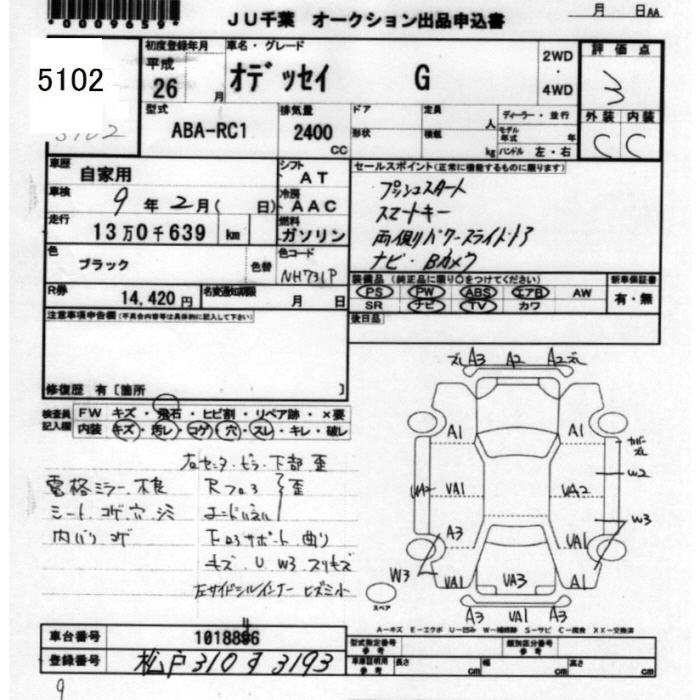 *0009659*
JU千葉 オークション出品申込書
月 日AA
5102
初度登録年月
平成
26 月
車名・グレード
オデッセイ G
2WD
4WD
評価点
3
型式
ABA-RC1
排気量
2400
CC
ドア
形状
定員
人
積載
kg
ディーラー・並行
モデル年式 年
ハンドル 左・右
外装 内装
C C
車歴
自家用
シフト
AT
セールスポイント(正常に機能するものに限ります)
プッシュスタート
スマートキー
両側パワースライドドア
ナビ・Bカメラ
車検
9 年 2 月( 日)
冷房
AAC
走行
13万0千639 km
燃料
ガソリン
色
ブラック
色替
色コード
NH731P
R券
14,420円
名変通知期限
月 日
装備品(純正品に限り○をつけてください)
PS PW ABS エアB AW
SR ナビ TV カワ
新車保証書
有・無
後日品
注意事項申告欄(不具合内容等は具体的に記入して下さい)
修復歴 有[箇所 ]
検査員
記入欄
FW キズ・飛石・ヒビ割・リペア跡・×要
内装 キズ・汚レ・コゲ・穴・スレ・キレ・破レ
下部 歪
電格ミラー不良
シート コゲ穴シミ
内バリ コゲ
コアサポート 曲り
キズ・U W3 スリキズ
左サイドシルインナー ヒズミ小
A3 A2 A2
A1 A1
W2
UA2 UA1 UA2
W3
A3 UA1
W3
UA1 UA3 A1
A3 UA1 A3
スペア
A－キズ E－エクボ U－凹み W－補修跡 S－サビ C－腐食 XX－交換済
車台番号
1018896
登録番号
松戸310す3193
型式指定番号
参考
類別区分番号
参考
車庫証明用
参考
長さ cm
幅 cm
高さ cm
9